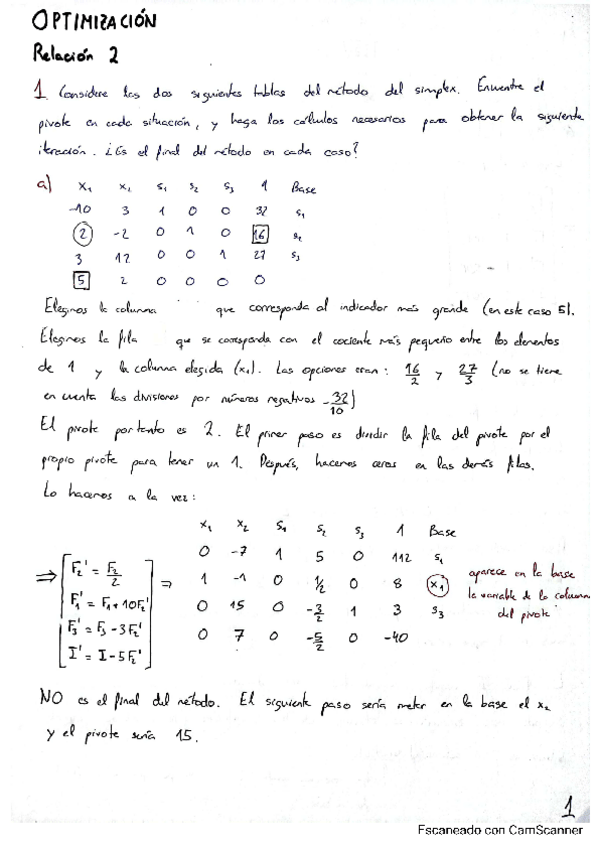 OPTIMIZACIÓN
Relación 2
1. Considere las dos siguientes tablas del método del simplex. Encuentre el
pivote en cada situación, y haga los cálculos necesarios para obtener la siguiente
iteración. ¿Es el final del método en cada caso?
a) x₁ x₂ s₁ s₂ s₃ 1 Base
-10 3 1 0 0 32 s₁
2 -2 0 1 0 16 s₂
3 12 0 0 1 27 s₃
5 2 0 0 0 0
Elegimos la columna que corresponda al indicador más grande (en este caso 5).
Elegimos la fila que se corresponda con el cociente más pequeño entre los elementos
de 1 y la columna elegida (x₁). Las opciones eran: 16/2 y 27/3 (no se tiene
en cuenta las divisiones por números negativos -32/10)
El pivote por tanto es 2. El primer paso es dividir la fila del pivote por el
propio pivote para tener un 1. Después, hacemos ceros en las demás filas.
Lo hacemos a la vez:
x₁ x₂ s₁ s₂ s₃ 1 Base
0 -7 1 5 0 112 s₁
⇒ F₂' = F₂/2 ⇒ 1 -1 0 1/2 0 8 x₁ aparece en la base
F₁' = F₁+10F₂' 0 15 0 -3/2 1 3 s₃ la variable de la columna
F₃' = F₃-3F₂' 0 7 0 -5/2 0 -40 del pivote
I' = I-5F₂'
NO es el final del método. El siguiente paso sería meter en la base el x₂
y el pivote sería 15.
1
Escaneado con CamScanner